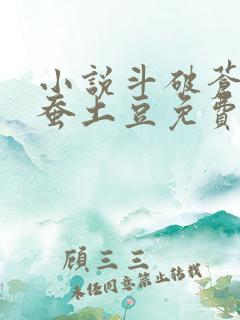 小說斗破蒼
蚕土豆免費
顧三三
未经同意禁止转载